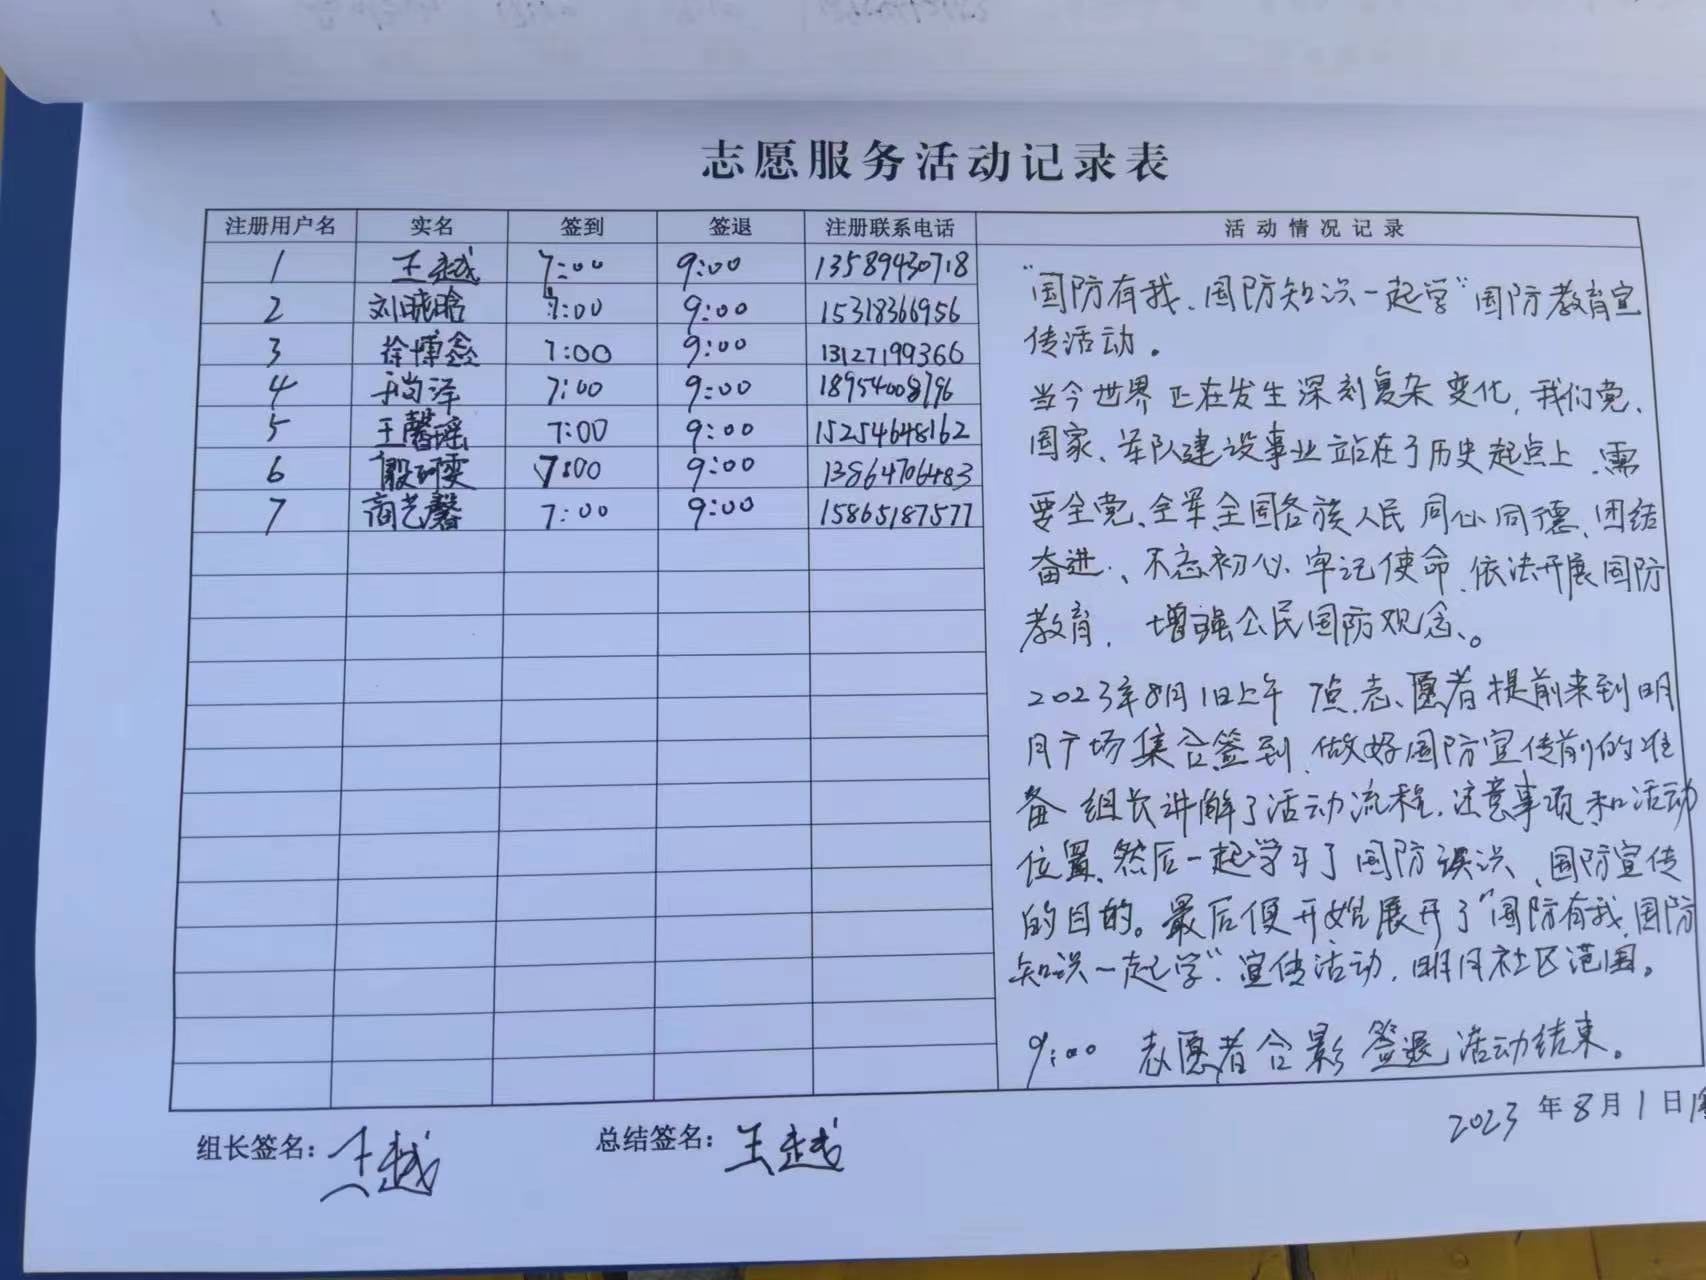 志愿服务活动记录表
注册用户名 实名 签到 签退 注册联系电话 活动情况记录
1 王越 7:00 9:00 13589430718
2 刘晓晗 7:00 9:00 15318366956
3 徐博鑫 7:00 9:00 13127199366
4 尚泽 7:00 9:00 18954008796
5 王馨瑶 7:00 9:00 15254648162
6 殷珂雯 7:00 9:00 13864706483
7 商艺馨 7:00 9:00 15865187577
“国防有我、国防知识一起学”国防教育宣
传活动。
当今世界正在发生深刻复杂变化,我们党、
国家、军队建设事业站在了历史起点上,需
要全党、全军、全国各族人民同心同德、团结
奋进、不忘初心、牢记使命、依法开展国防
教育,增强公民国防观念。
2023年8月1日上午7点,志愿者提前来到明
月广场集合签到,做好国防宣传前的准
备 组长讲解了活动流程,注意事项和活动
位置,然后一起学习了国防误识、国防宣传
的目的。最后便开始展开了“国防有我,国防
知识一起学”宣传活动,明月社区范围。
9:00 志愿者合影签退,活动结束。
组长签名:王越 总结签名:王越
2023年8月1日